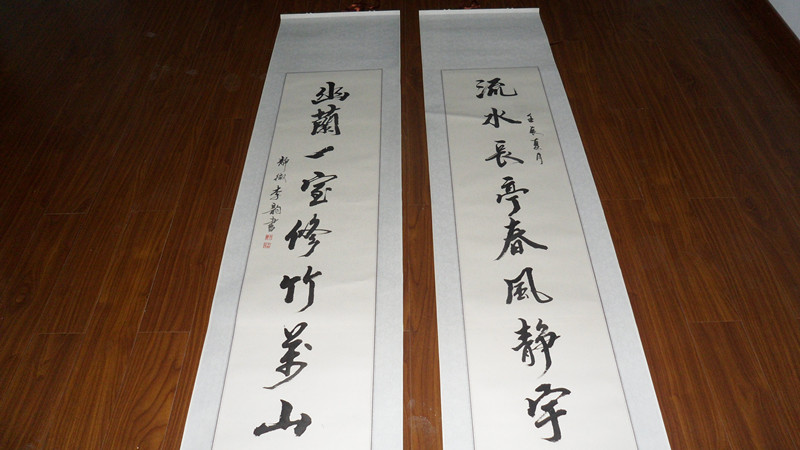 流水長亭春風静宇
壬辰夏月
幽蘭一室修竹万山
李韵書